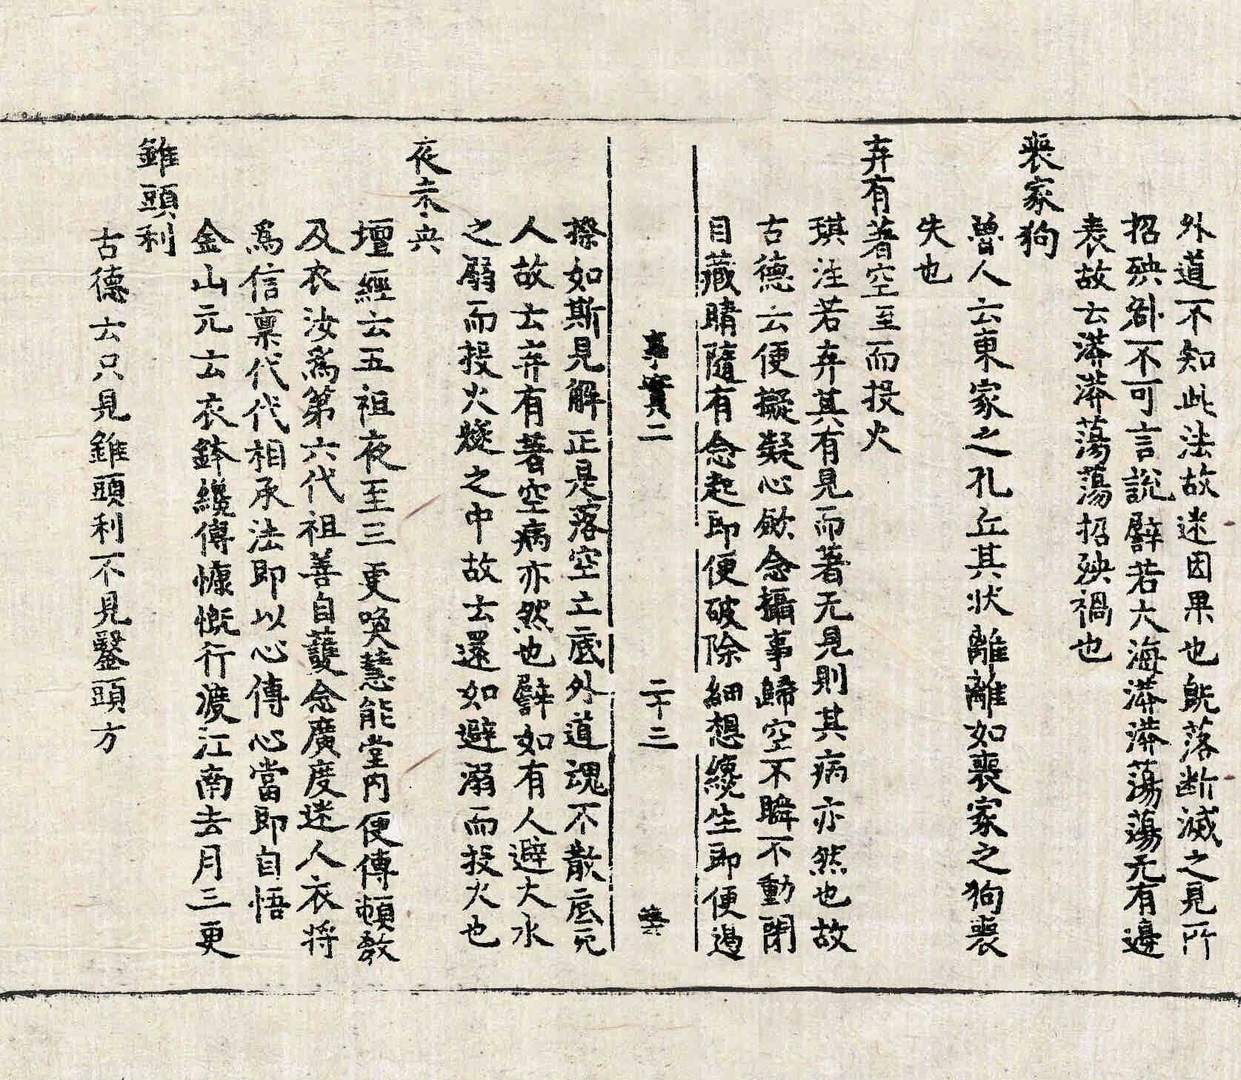 外道不知此法故迷因果也既落断滅之見所
招殃禍不可言說譬若大海漭漭蕩蕩无有邊
表故云漭漭蕩蕩招殃禍也
喪家狗
魯人云東家之孔丘其状離離如喪家之狗喪
失也
弃有著空至而投火
琪注若弃其有見而著无見則其病亦然也故
古德云便擬凝心歛念攝事歸空不瞬不動閉
目藏睛隨有念起即便破除細想纔生即便遏
事實二 二十三
捺如斯見解正是落空立底外道魂不散底死
人故云弃有著空病亦然也譬如有人避大水
之溺而投火燧之中故云還如避溺而投火也
夜未央
壇經云五祖夜至三更喚慧能堂内便傳頓教
及衣汝為第六代祖善自護念廣度迷人衣将
為信禀代代相承法即以心傳心當即自悟
金山元云衣鉢纔傳慷慨行渡江南去月三更
錐頭利
古德云只見錐頭利不見鑿頭方